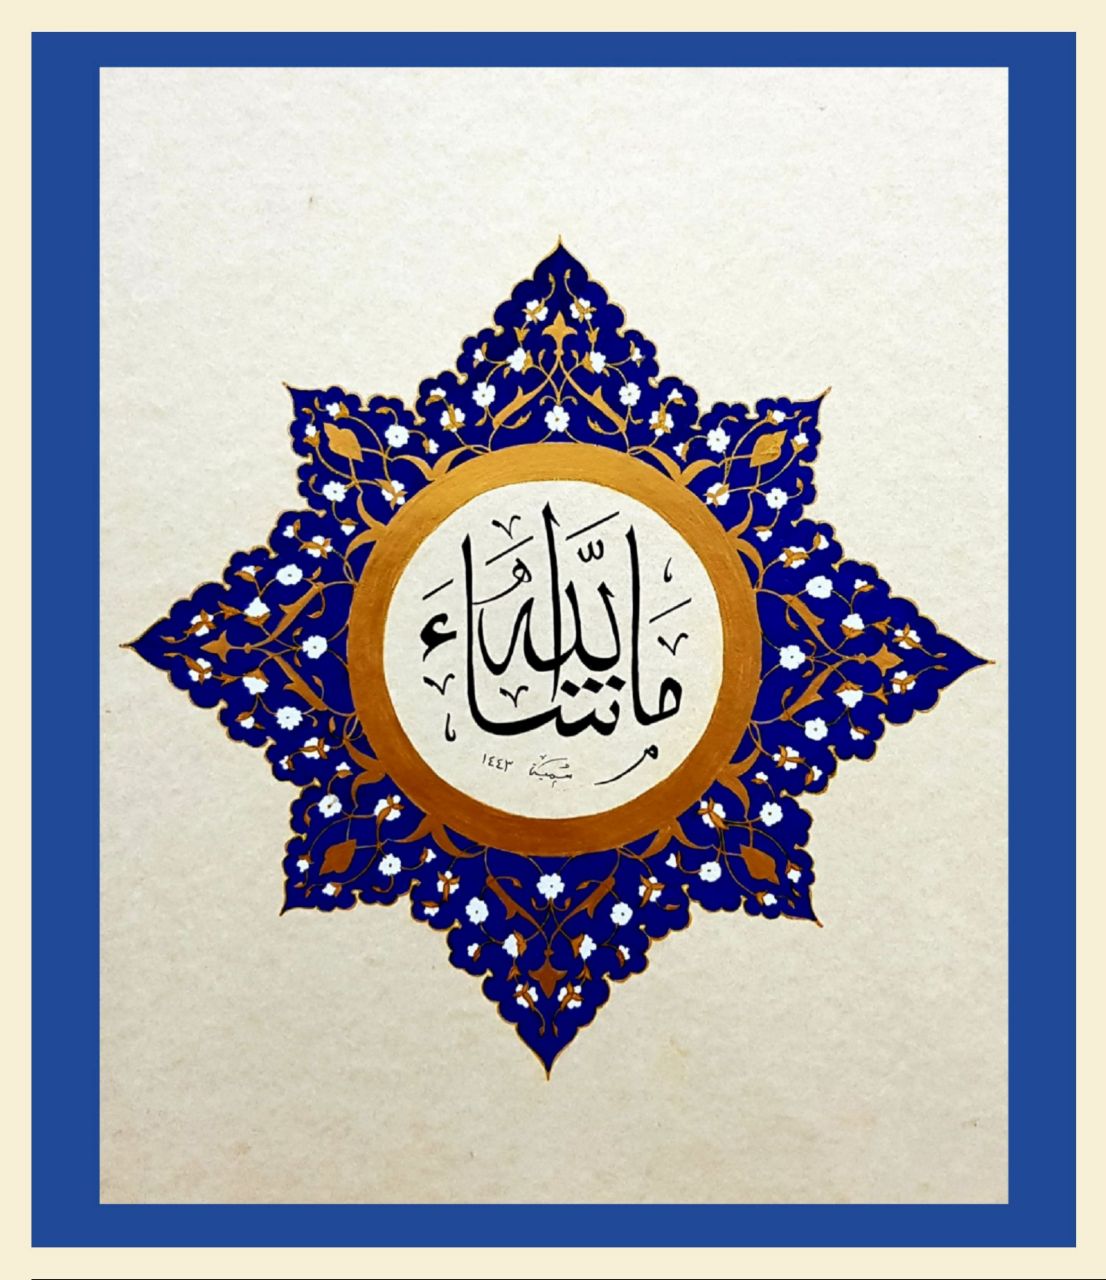 ما شاء الله
سمية ١٤٤٣